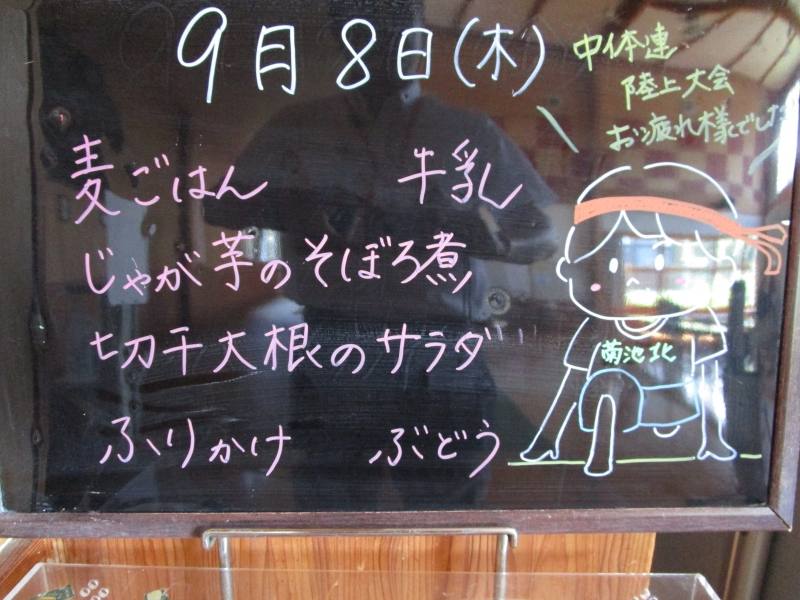 9月8日(木)
中体連
陸上大会
お疲れ様でした
麦ごはん 牛乳
じゃが芋のそぼろ煮
切干大根のサラダ
ふりかけ ぶどう
菊池北